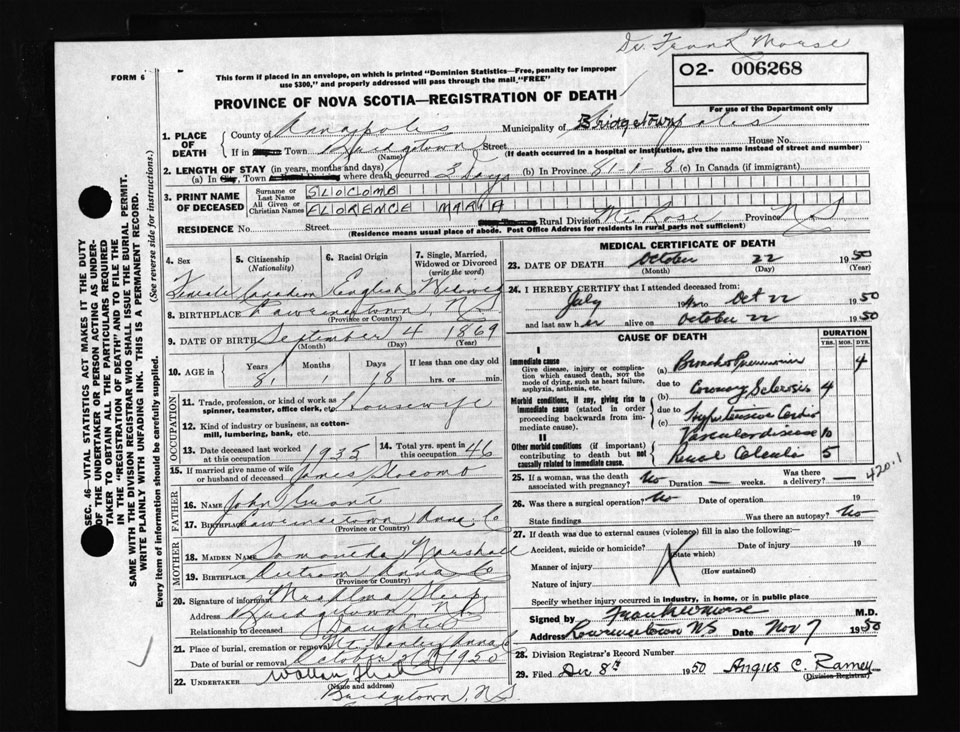 Dr. Frank Morse
FORM 6
This form if placed in an envelope, on which is printed "Dominion Statistics—Free, penalty for improper
use $300," and properly addressed will pass through the mail "FREE"
O2- 006268
For use of the Department only
PROVINCE OF NOVA SCOTIA—REGISTRATION OF DEATH
1. PLACE OF DEATH County of Annapolis Municipality of Bridgetown
If in Town Bridgetown Street House No.
(Name) (If death occurred in a hospital or institution, give the name instead of street and number)
2. LENGTH OF STAY (in years, months and days)
(a) In City, Town where death occurred 3 Days (b) In Province 81-1-8 (c) In Canada (if immigrant)
3. PRINT NAME OF DECEASED
Surname or Last Name SLOCOMB
All Given or Christian Names FLORENCE MARIA
RESIDENCE No. Street Rural Division Mt. Rose Province N.S
(Residence means usual place of abode. Post Office Address for residents in rural parts not sufficient)
4. Sex 5. Citizenship (Nationality) 6. Racial Origin 7. Single, Married, Widowed or Divorced (write the word)
Female Canadian English Widowed
8. BIRTHPLACE Lawrencetown, N.S
(Province or Country)
9. DATE OF BIRTH September 4 1869
(Month) (Day) (Year)
10. AGE in Years Months Days If less than one day old
81 1 18 hrs. or min.
OCCUPATION
11. Trade, profession, or kind of work as spinner, teamster, office clerk, etc. Housewife
12. Kind of industry or business, as cotton-mill, lumbering, bank, etc.
13. Date deceased last worked at this occupation 1935 14. Total yrs. spent in this occupation 46
15. If married give name of wife or husband of deceased James Slocomb
FATHER
16. Name John
17. Birthplace Lawrencetown Anna. Co
(Province or Country)
MOTHER
18. Maiden Name Marshall
19. Birthplace Outram Anna Co
(Province or Country)
20. Signature of informant Mrs
Address Bridgetown, N.S
Relationship to deceased Daughter
21. Place of burial, cremation or removal Mt. Hanley Anna Co
Date of burial or removal October 1950
22. UNDERTAKER
(Name and address)
Bridgetown, N.S.
MEDICAL CERTIFICATE OF DEATH
23. DATE OF DEATH October 22 1950
(Month) (Day) (Year)
24. I HEREBY CERTIFY that I attended deceased from:
July 19 to Oct 22 1950
and last saw her alive on October 22 1950
CAUSE OF DEATH DURATION
YRS. MOS. DYS.
I
Immediate cause
Give disease, injury or complication which caused death, not the mode of dying, such as heart failure, asphyxia, asthenia, etc.
(a) Broncho Pneumonia 4
due to
(b) Coronary Sclerosis 4
Morbid conditions, if any, giving rise to immediate cause (stated in order proceeding backwards from immediate cause).
due to
(c) Hypertensive Cardio
Vascular disease 10
II
Other morbid conditions (if important) contributing to death but not causally related to immediate cause.
Renal Calculi 5
420.1
25. If a woman, was the death associated with pregnancy? No Duration — weeks. Was there a delivery? —
26. Was there a surgical operation? No Date of operation 19
State findings Was there an autopsy? No
27. If death was due to external causes (violence) fill in also the following:—
Accident, suicide or homicide? Date of injury 19
(State which)
Manner of injury
(How sustained)
Nature of injury
Specify whether injury occurred in industry, in home, or in public place
Signed by Frank Morse M.D.
Address Lawrencetown N.S Date Nov 7 1950
28. Division Registrar's Record Number
29. Filed Dec 8th 1950 Angus C. Ramey
(Division Registrar)
SEC. 46 VITAL STATISTICS ACT MAKES IT THE DUTY
OF THE UNDERTAKER OR PERSON ACTING AS UNDER-
TAKER TO OBTAIN ALL THE PARTICULARS REQUIRED
IN THE "REGISTRATION OF DEATH" AND TO FILE THE
SAME WITH THE DIVISION REGISTRAR WHO SHALL ISSUE THE BURIAL PERMIT.
WRITE PLAINLY WITH UNFADING INK. THIS IS A PERMANENT RECORD.
Every item of information should be carefully supplied. (See reverse side for instructions.)